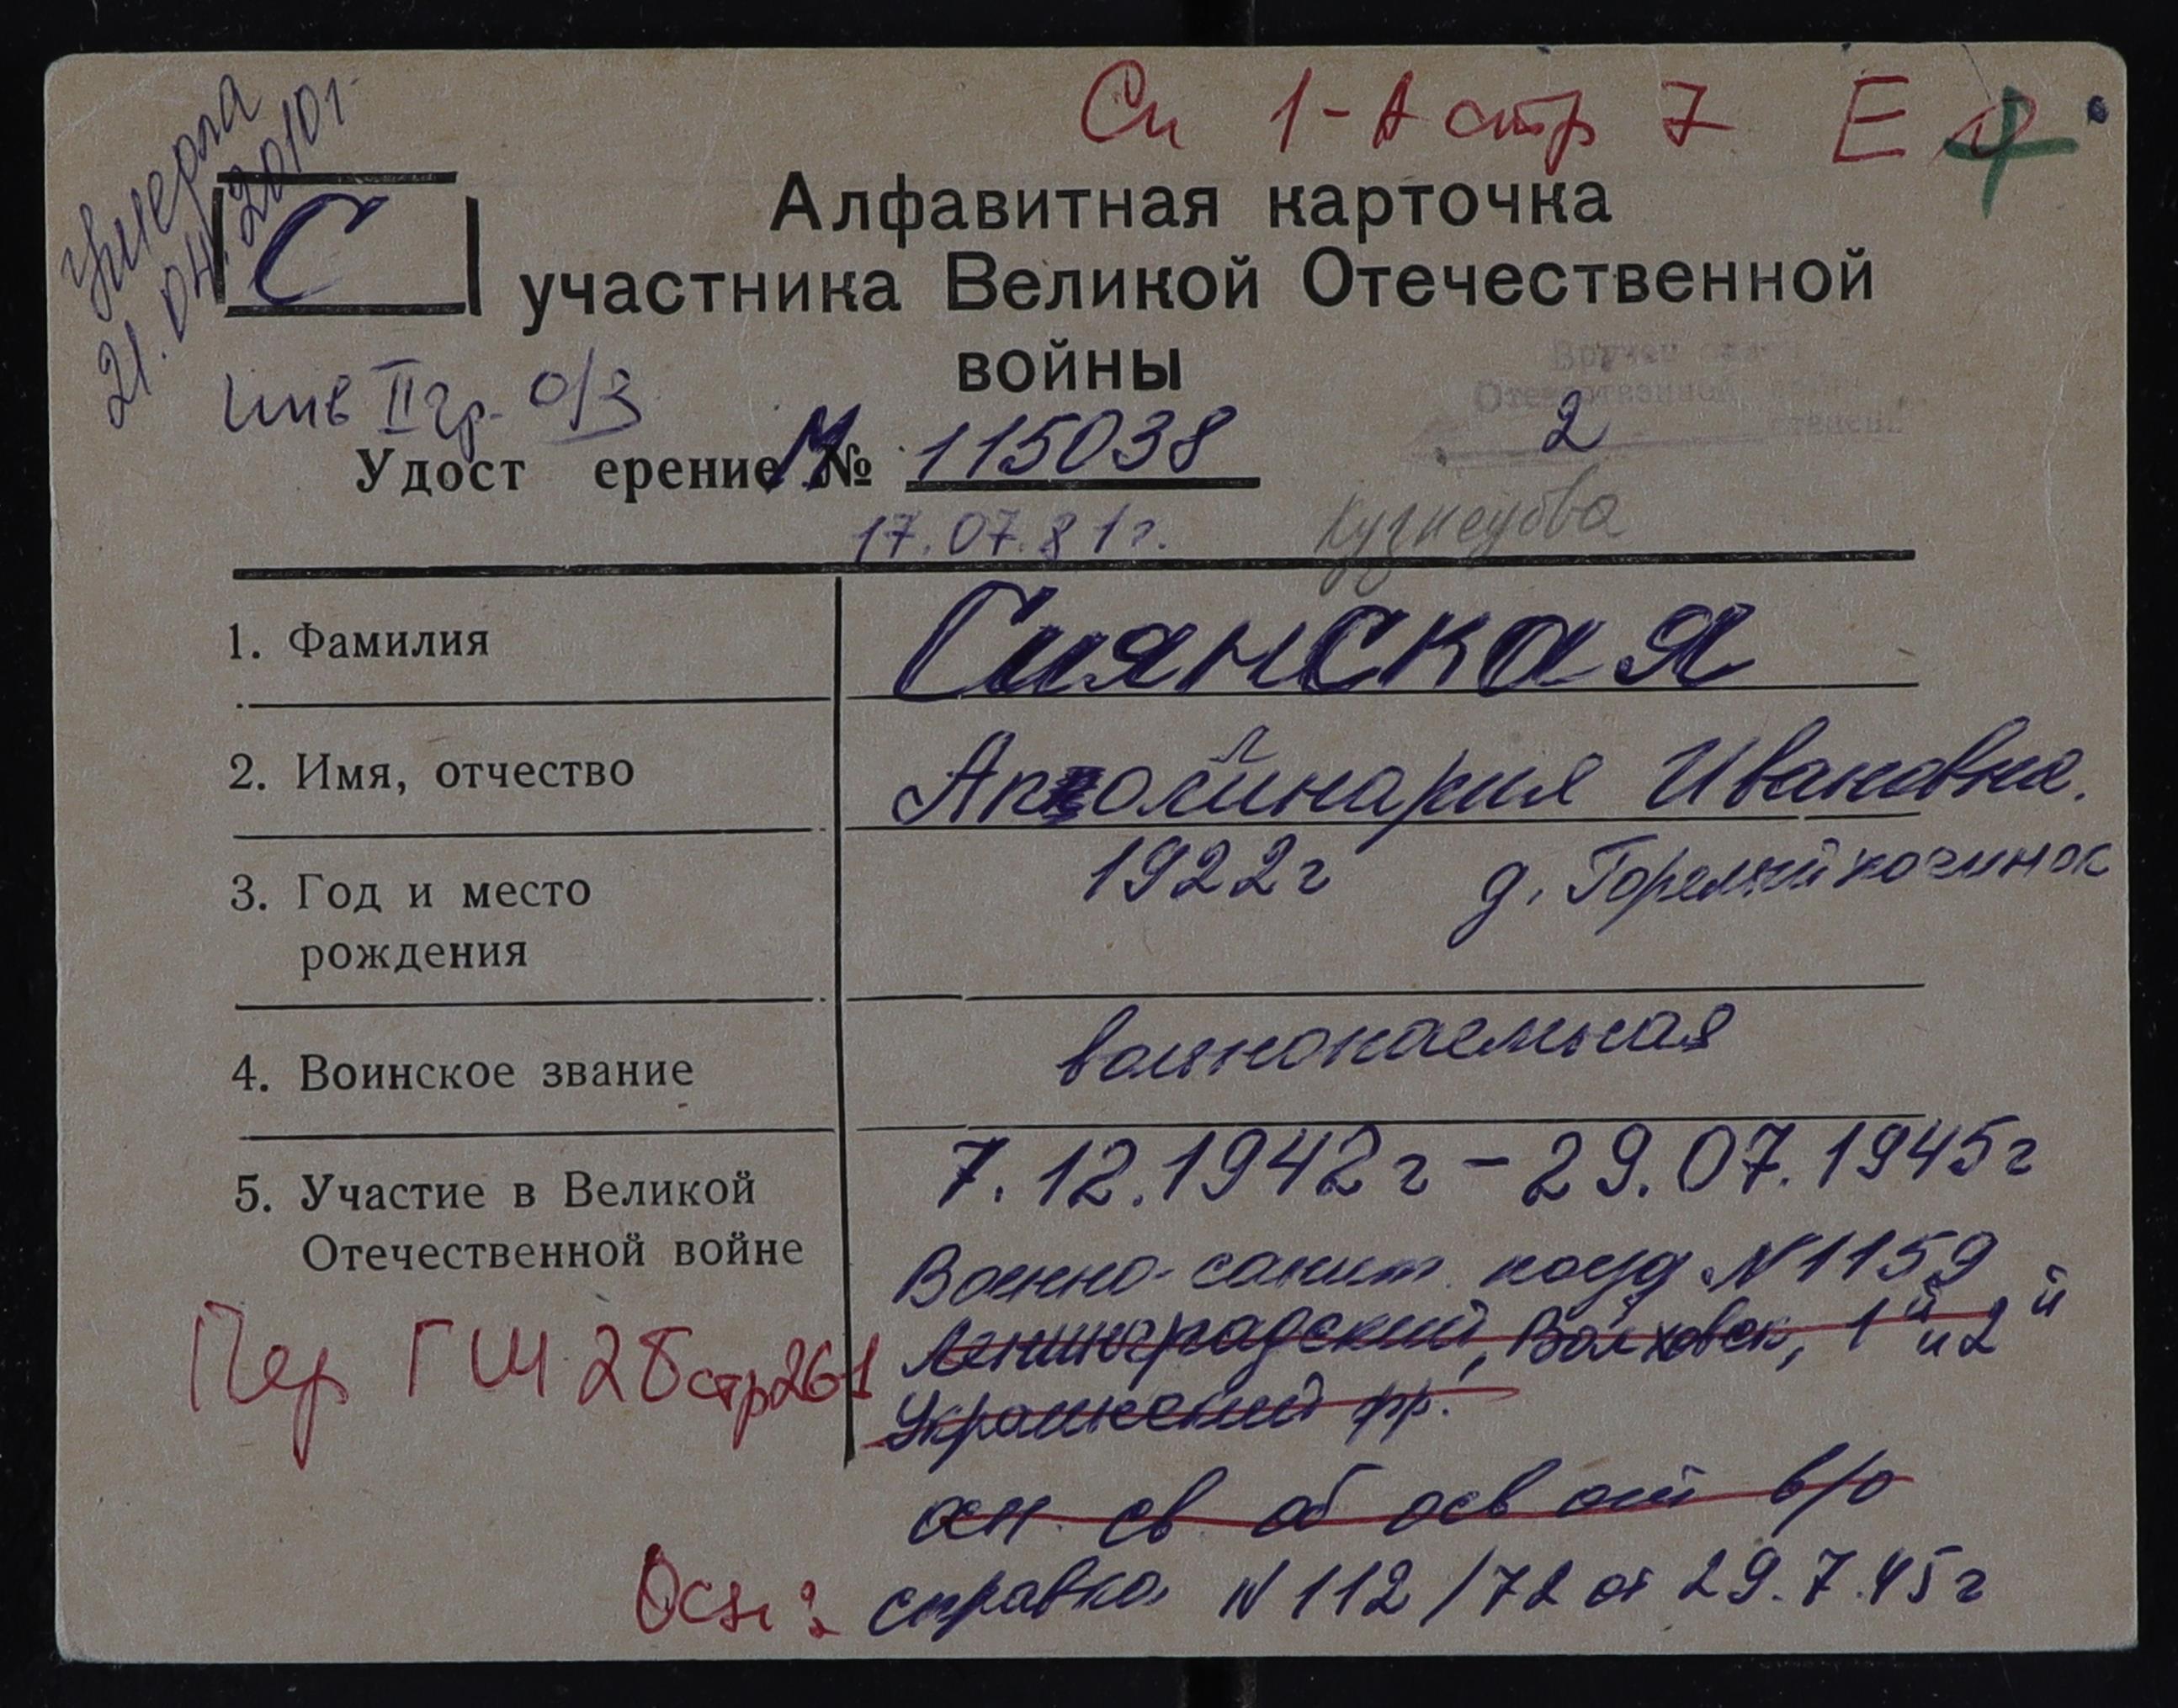 Сп 1-А стр 7 Е
умерла
21.04.2010г.
С
Алфавитная карточка
участника Великой Отечественной
войны
инв II гр. о/з
Вручен
Отечественной войны
2 степени
Удост ерение И № 115038
17.07.81г. Кузнецова
1. Фамилия Сиянская
2. Имя, отчество Апполинария Ивановна.
3. Год и место 1922г д. Горелый починок
рождения
4. Воинское звание вольнонаемная
5. Участие в Великой 7.12.1942г – 29.07.1945г
Отечественной войне Военно-санит. поезд №1159
Ленинградский, Волховск, 1й и 2й
Пер ГШ 28 стр 261
Украинский фр.
осн св об осв от в/о
Осн: справка N 112/72 от 29.7.45г